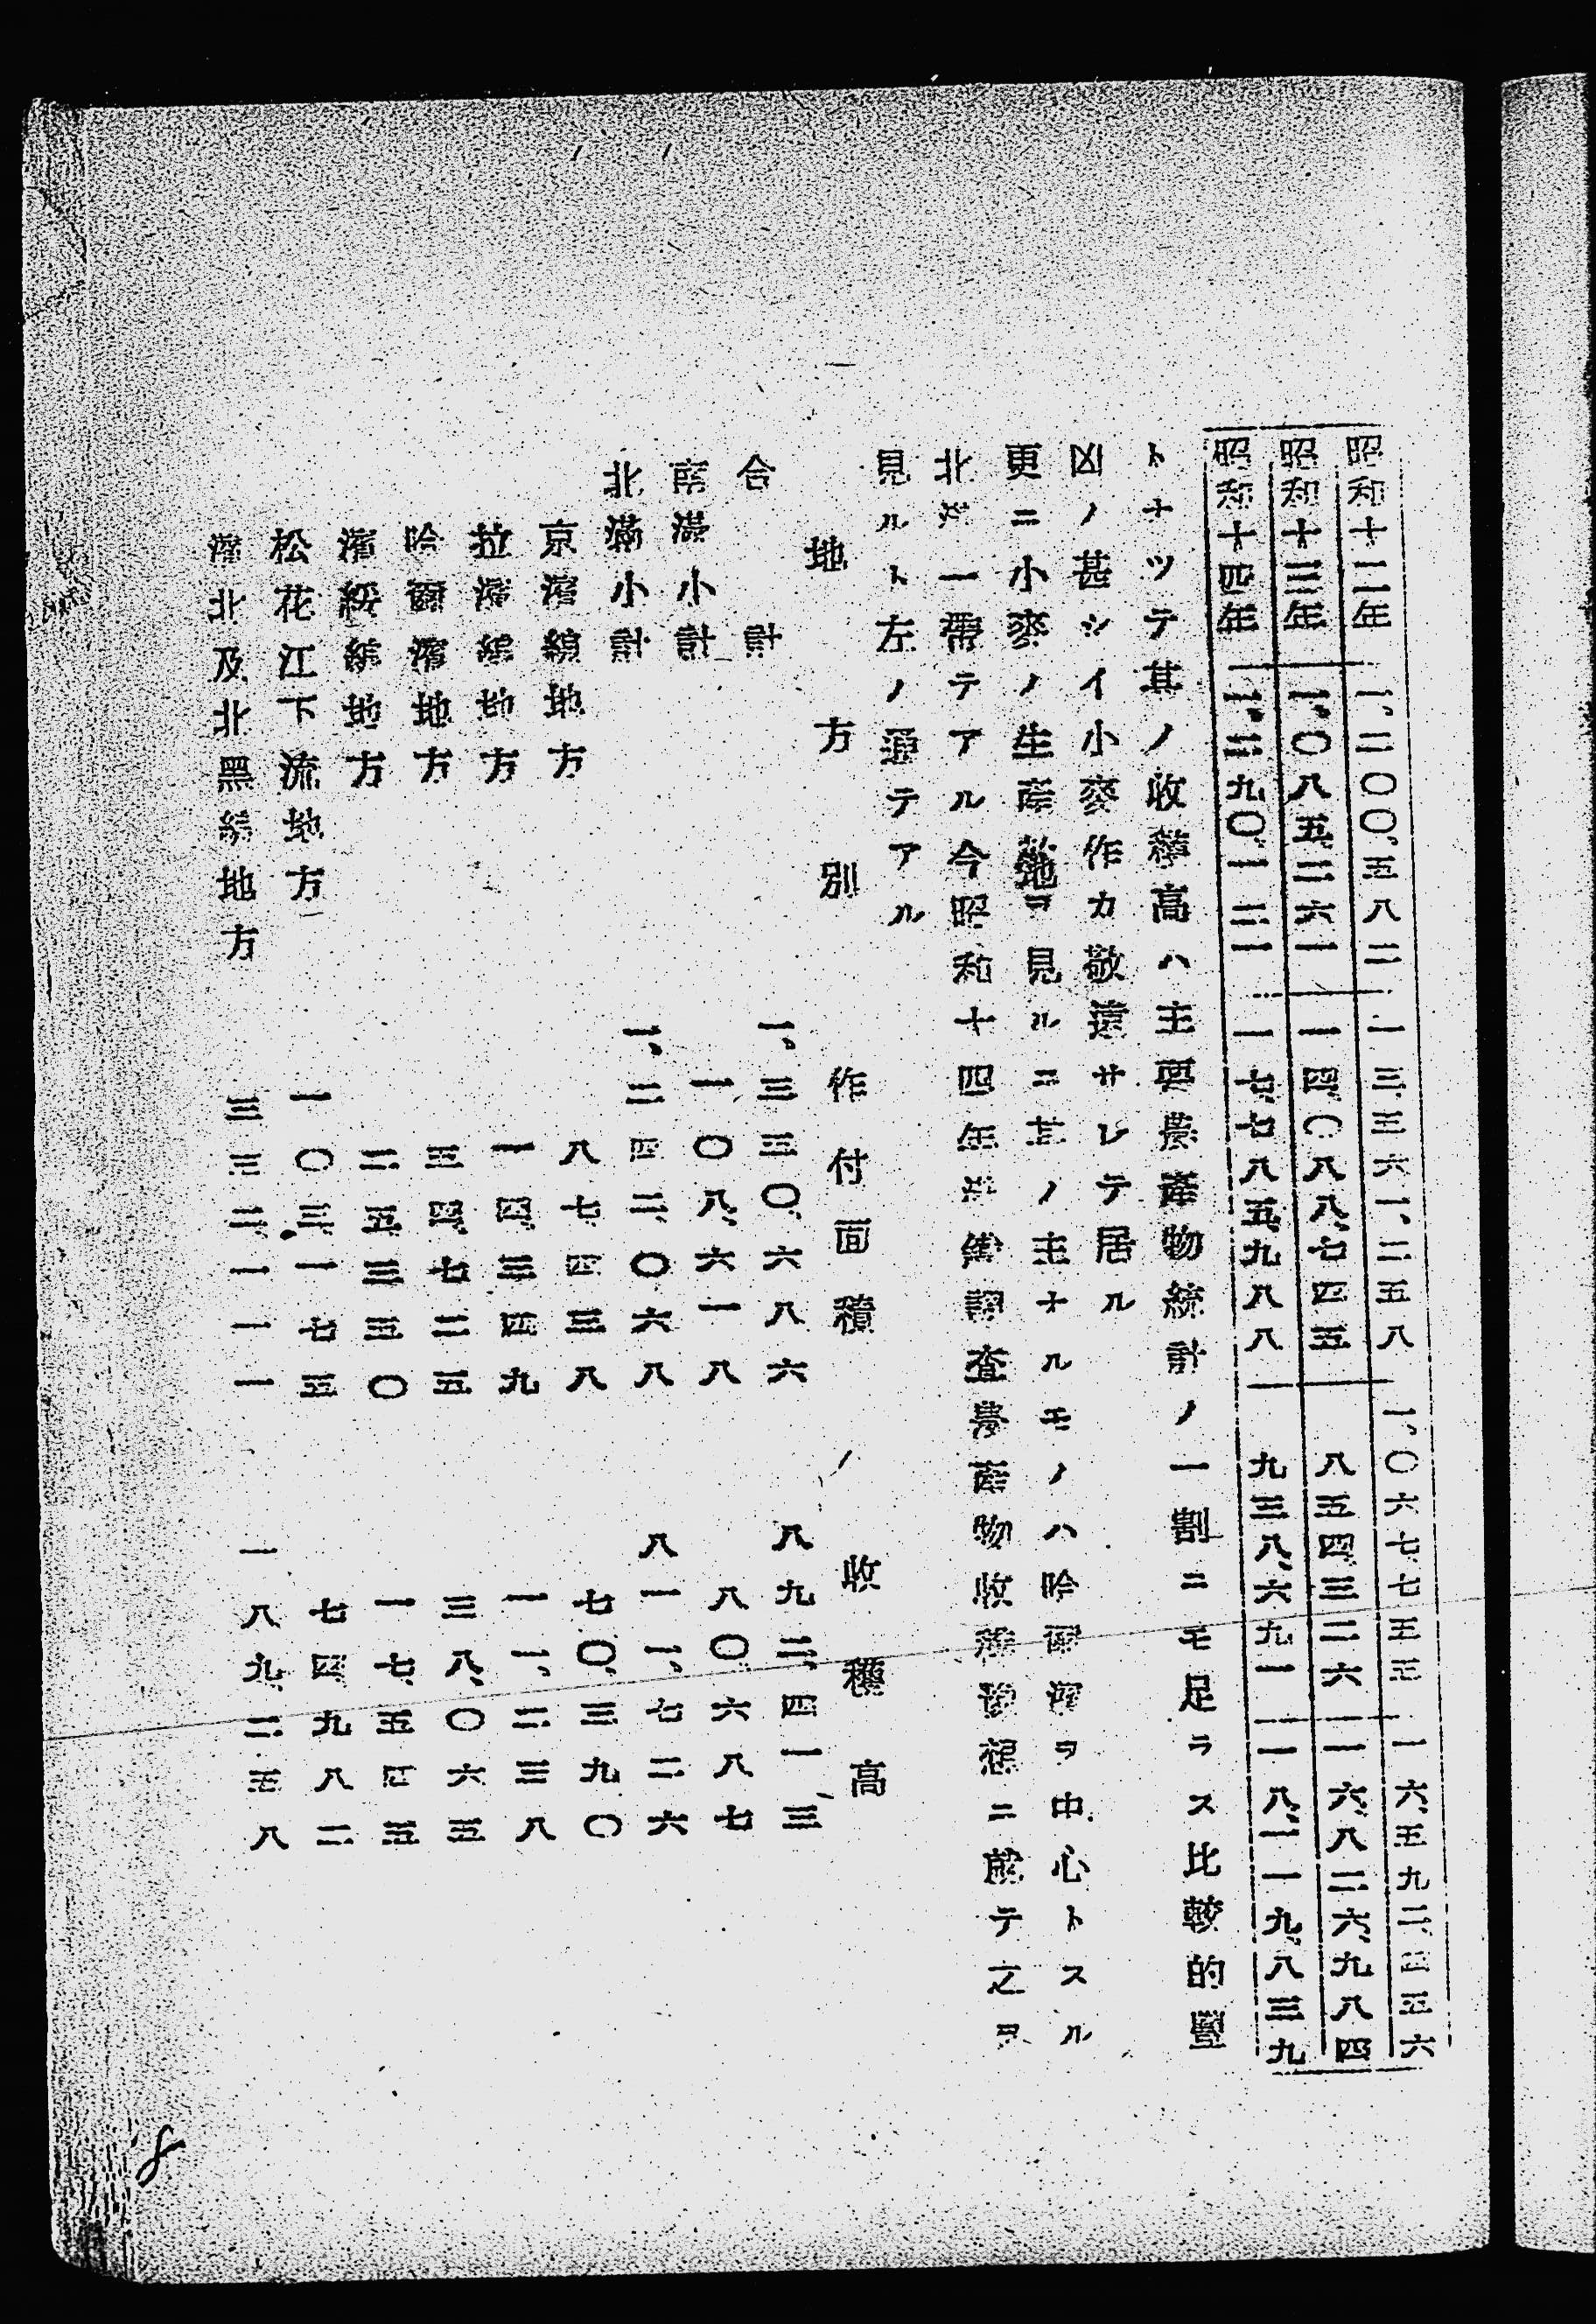 昭和十二年 一、二〇〇、五八二 一三、三六一、二五八 一、〇六七、七五三 一六、五九二、四五六
昭和十三年 一、〇八五、二六一 一四、〇八八、七四五 八五四、三二六 一六、八二六、九八四
昭和十四年 一、三九〇、一二一 一七、七八五、九八八 九三八、六九一 一八、一一九、八三九
トナツテ其ノ收穫高ハ主要農產物統計ノ一割ニモ足ラス比較的豐
凶ノ甚シイ小麥作カ敬遠サレテ居ル
更ニ小麥ノ生產地ヲ見ルニ其ノ主ナルモノハ哈爾濱ヲ中心トスル
北滿一帶テアル今昭和十四年滿鐵調査農產物收穫豫想ニ依テ之ヲ
見ルト左ノ通テアル
地方別 作付面積 收穫高
合計 一、三三〇、六八六 八九二、四一三
南滿小計 一〇八、六一八 八〇、六八七
北滿小計 一、二四二、〇六八 八一一、七二六
京濱線地方 八七四三八 七〇、三九〇
拉濱線地方 一四、三四九 一一、二三八
哈爾濱地方 三四、七二五 三八、〇六五
濱綏線地方 二五、三五〇 一七、五四五
松花江下流地方 一〇三、一七五 七四、九八二
濱北及北黑線地方 三三二、一一一 一八九、二五八
8